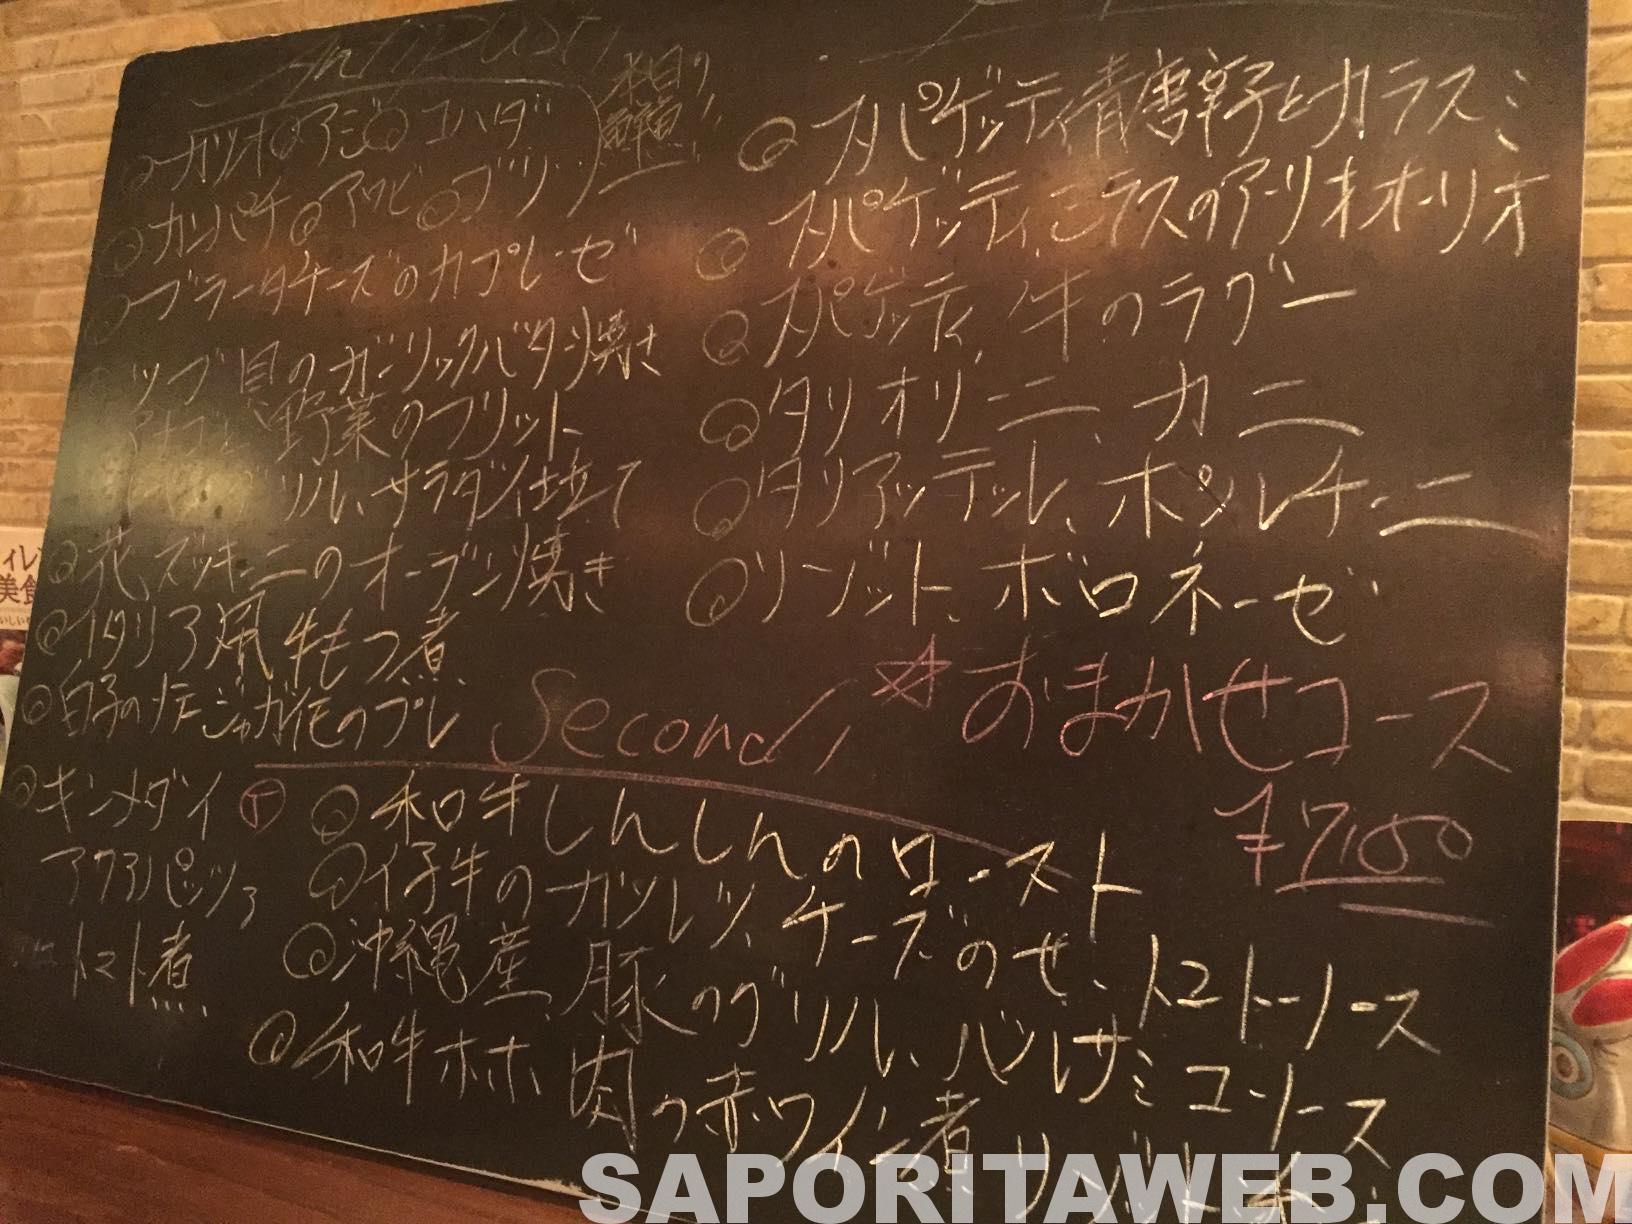 Antipasti
カツオ アジ コハダ
本日の鮮魚
カンパチ アワビ ブリ
ブラータチーズのカプレーゼ
ツブ貝のガーリックバター焼き
野菜のフリット
グリル、サラダ仕立て
花ズッキーニのオーブン焼き
イタリア風牛もつ煮
白子の
キンメダイ
アクアパッツァ
トマト煮
スパゲッティ青唐辛子とカラスミ
スパゲッティ、シラスのアーリオオーリオ
スパゲッティ、牛のラグー
タリオリーニ、カニ
タリアッテッレ、ポルチーニ
リゾット、ボロネーゼ
☆おまかせコース
Second
和牛しんしんのロースト
仔牛のカツレツ、チーズのせ、トマトソース
沖縄産、豚のグリル、バルサミコソース
和牛ホホ肉の赤ワイン煮
ィレ
美食
SAPORITAWEB.COM